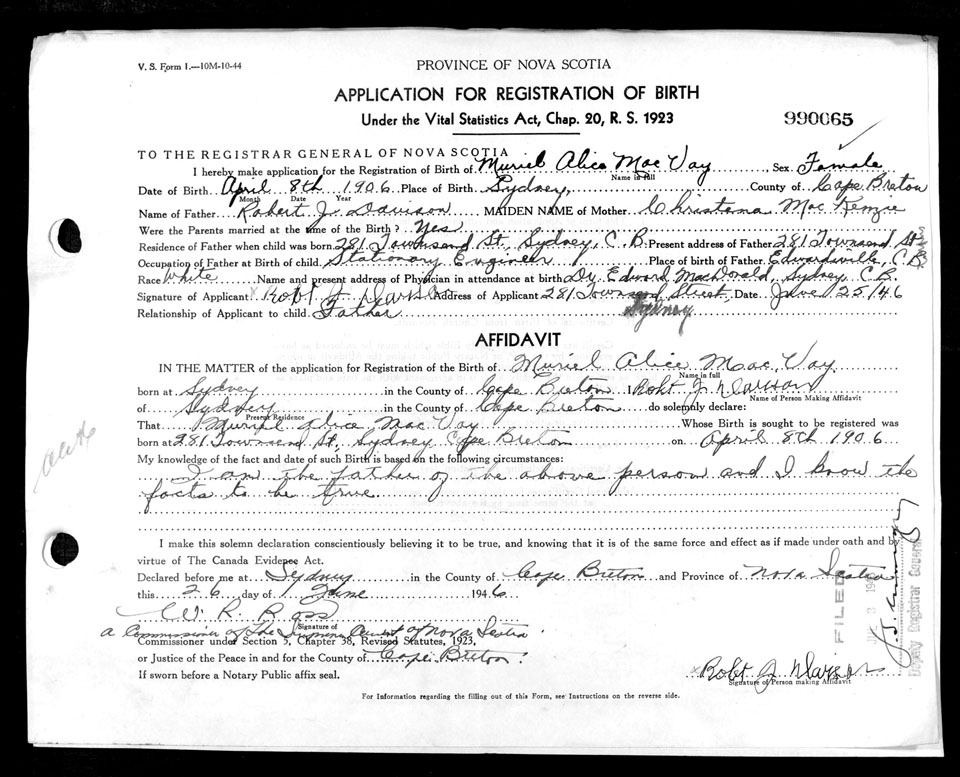 V. S. Form 1.—10M-10-44
PROVINCE OF NOVA SCOTIA
APPLICATION FOR REGISTRATION OF BIRTH
Under the Vital Statistics Act, Chap. 20, R. S. 1923
990065
TO THE REGISTRAR GENERAL OF NOVA SCOTIA
I hereby make application for the Registration of Birth of Muriel Alice Mac Vay, Sex Female
Name in full
Date of Birth April 8th 1906 Place of Birth Sydney, County of Cape Breton
Month Date Year
Name of Father Robert J. Davison MAIDEN NAME of Mother Christena Mac Kenzie
Were the Parents married at the time of the Birth? Yes
Residence of Father when child was born 281 Townsend St, Sydney, C. B. Present address of Father 281 Townsend St
Occupation of Father at Birth of child Stationary Engineer Place of birth of Father Edwardsville, C B
Race White Name and present address of Physician in attendance at birth Dr. Edward MacDonald, Sydney C. B.
Signature of Applicant x Robt J Davison Address of Applicant 281 Townsend Street Date June 25/46
Sydney
Relationship of Applicant to child Father
AFFIDAVIT
IN THE MATTER of the application for Registration of the Birth of Muriel Alice Mac Vay
Name in full
born at Sydney in the County of Cape Breton I Robt J Davison
Name of Person Making Affidavit
of Sydney in the County of Cape Breton do solemnly declare:
Present Residence
That Muriel Alice Mac Vay Whose Birth is sought to be registered was
born at 281 Townsend St, Sydney Cape Breton on April 8th 1906
My knowledge of the fact and date of such Birth is based on the following circumstances:
I am the father of the above person and I know the
facts to be true
I make this solemn declaration conscientiously believing it to be true, and knowing that it is of the same force and effect as if made under oath and by
virtue of The Canada Evidence Act.
Declared before me at Sydney in the County of Cape Breton and Province of Nova Scotia
this 26 day of June 1946
W. R. Ross
Signature of
a Commissioner of The Supreme Court of Nova Scotia
Commissioner under Section 5, Chapter 38, Revised Statutes, 1923,
or Justice of the Peace in and for the County of Cape Breton.
If sworn before a Notary Public affix seal.
x Robt J Davison
Signature of Person making Affidavit
For Information regarding the filling out of this Form, see Instructions on the reverse side.
FILED
Deputy Registrar General